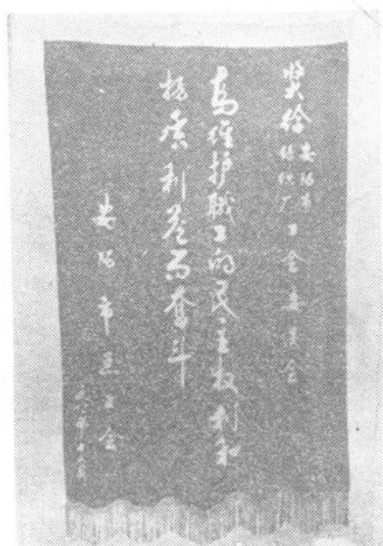 奖给
安阳市
织厂
工会委员会
为维护職工的民主权利和
物质利益而奮斗
安阳市总工会